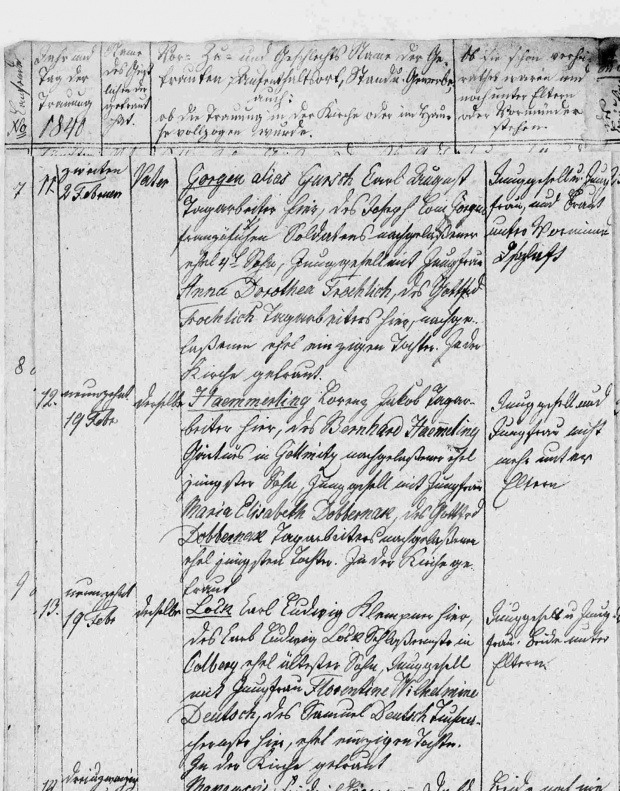 Laufende
No
Jahr und
Tag der
Trauung
1840
Name
des Geist
lichen der
getraut
hat.
Vor- Zu- und Geschlechts Name der Ge-
trauten, Aufenthaltsort, Stand u. Gewerbe
auch:
ob die Trauung in der Kirche oder im Hau-
se vollzogen wurde.
Ob sie schon verhei
rathet waren und
noch unter Eltern
oder Vormünder
stehen.
7
11.
zweiten
2 Februar
Vater
Gorgen alias Gursch Carl August
Tagarbeiter hier, des Joseph
französischen Soldatens nachgelassener
ehel Sohn, Junggesell mit Jungfrau
Anna Dorothea Froehlich, des Gottfried
Froehlich Tagarbeiters hier, nachge-
lassenen ehel einzigen Tochter. In der
Kirche getraut.
Junggesell u. Jung
frau, und Braut
unter Vormund
schaft
8
12.
neunzehnt
19 Febr
derselbe
Haemmerling Lorenz Jakob Tagar-
beiter hier, des Bernhard Haemerling
Gärtners in nachgelassener ehel
jüngster Sohn, Junggesell mit Jungfrau
Maria Elisabeth Dobbernak, des Gottfried
Dobbernak Tagarbeiters nachgelassene
ehel jüngsten Tochter. In der Kirche ge
traut
Junggesell und
Jungfrau nicht
mehr unter
Eltern
9
13.
neunzehnt
19 Febr
derselbe
Löck Carl Ludwig Klempner hier,
des Carl Ludwig Löck in
Colberg ehel ältester Sohn, Junggesell
mit Jungfrau Florentine Wilhelmine
Deutsch, des Samuel Deutsch
hier, ehel einzigen Tochter.
In der Kirche getraut
Junggesell u Jung
frau. Beide unter
Eltern
dreiundzwanzig
Beide noch nie